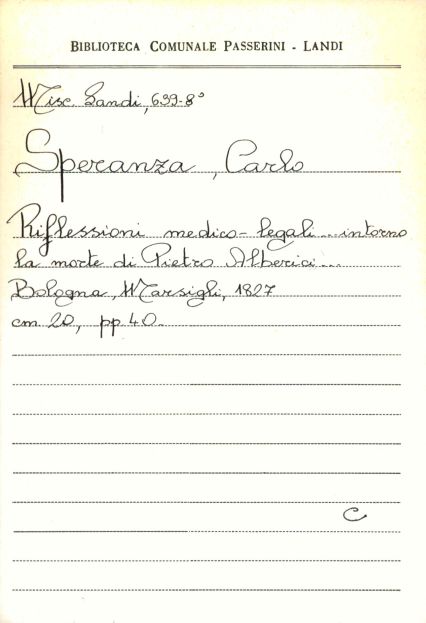 BIBLIOTECA COMUNALE PASSERINI - LANDI
Misc. Landi, 639-8°
Speranza, Carlo
Riflessioni medico-legali...intorno
la morte di Pietro Alberici...
Bologna, Marsigli, 1827
cm. 20, pp. 40.
C